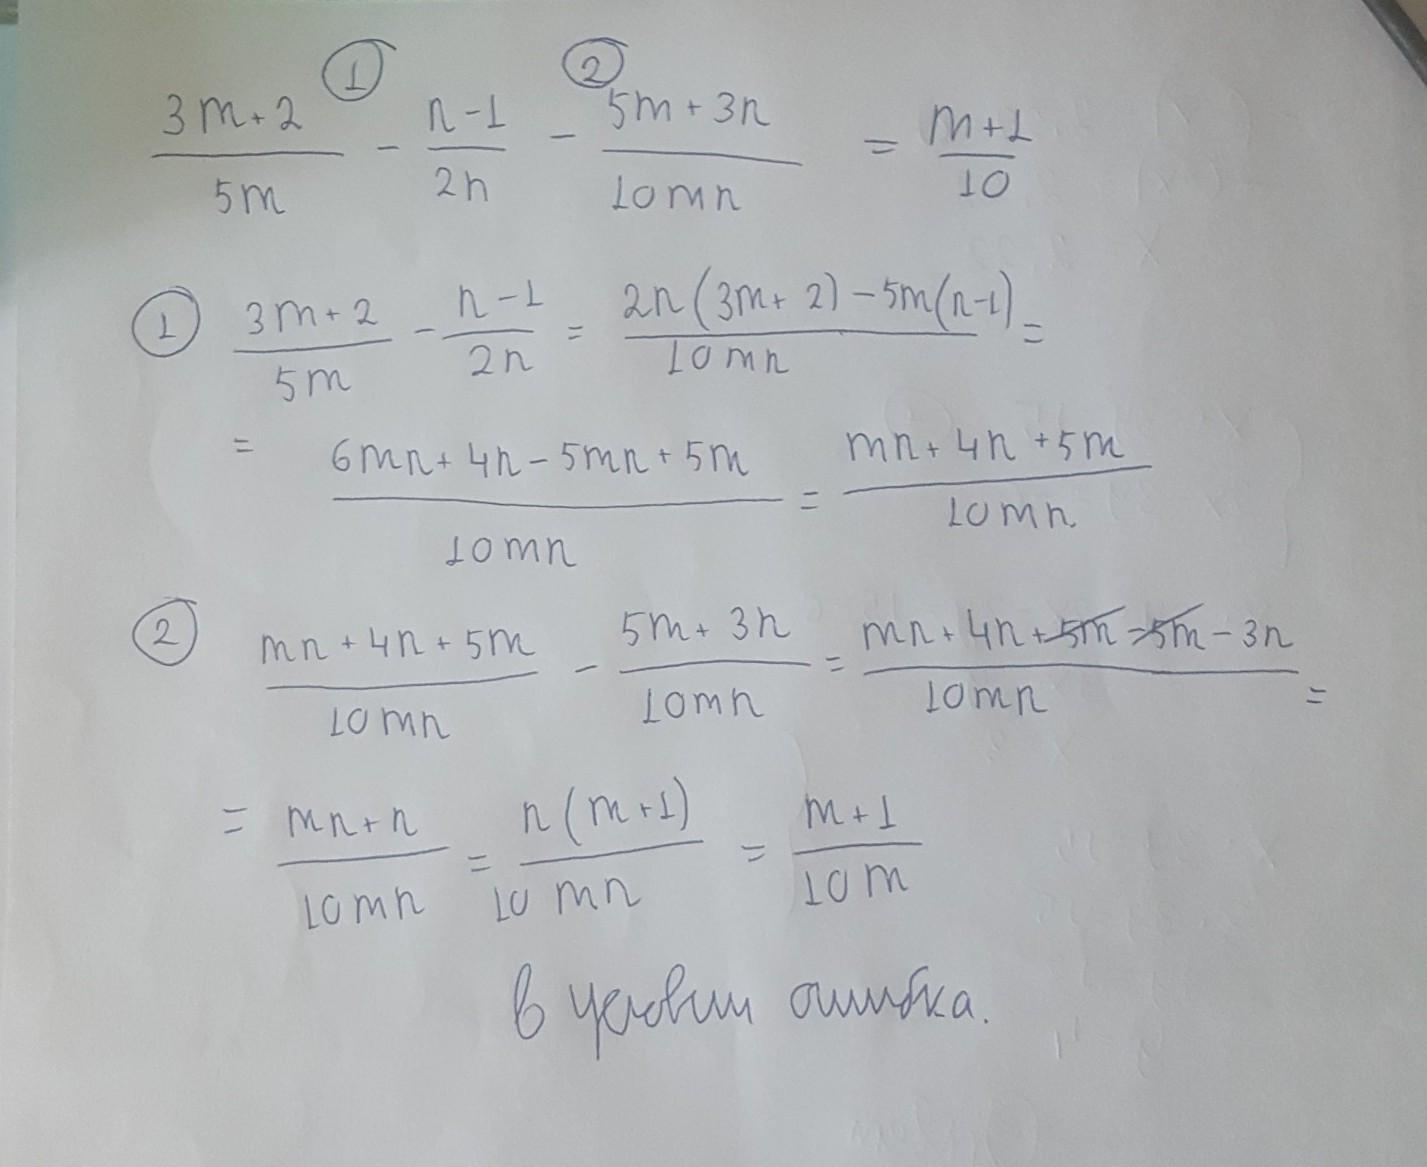 ① ②
(3m+2)/(5m) - (n-1)/(2n) - (5m+3n)/(10mn) = (m+1)/10
① (3m+2)/(5m) - (n-1)/(2n) = (2n(3m+2)-5m(n-1))/(10mn) =
= (6mn+4n-5mn+5m)/(10mn) = (mn+4n+5m)/(10mn)
② (mn+4n+5m)/(10mn) - (5m+3n)/(10mn) = (mn+4n+5m-5m-3n)/(10mn) =
= (mn+n)/(10mn) = (n(m+1))/(10mn) = (m+1)/(10m)
В условии ошибка.